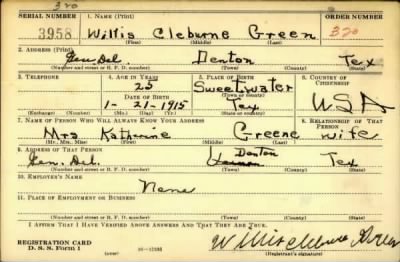 320
SERIAL NUMBER 1. NAME (Print) ORDER NUMBER
3958 Willis Cleburne Green 320
(First) (Middle) (Last)
2. ADDRESS (Print)
Gen Del Denton Tex
(Number and street or R. F. D. number) (Town) (County) (State)
3. TELEPHONE 4. AGE IN YEARS 5. PLACE OF BIRTH 6. COUNTRY OF CITIZENSHIP
25 Sweetwater
(Town or county)
DATE OF BIRTH
1-21-1915 Tex USA
(Exchange) (Number) (Mo.) (Day) (Yr.) (State or country)
7. NAME OF PERSON WHO WILL ALWAYS KNOW YOUR ADDRESS 8. RELATIONSHIP OF THAT PERSON
Mrs Katherine Greene wife
(Mr., Mrs., Miss) (First) (Middle) (Last)
9. ADDRESS OF THAT PERSON
Denton
Gen. Del. Tex
(Number and street or R. F. D. number) (Town) (County) (State)
10. EMPLOYER'S NAME
None
11. PLACE OF EMPLOYMENT OR BUSINESS
(Number and street or R. F. D. number) (Town) (County) (State)
I AFFIRM THAT I HAVE VERIFIED ABOVE ANSWERS AND THAT THEY ARE TRUE.
REGISTRATION CARD
D. S. S. Form 1 (over) Willis Cleburne Green
(Registrant's signature)